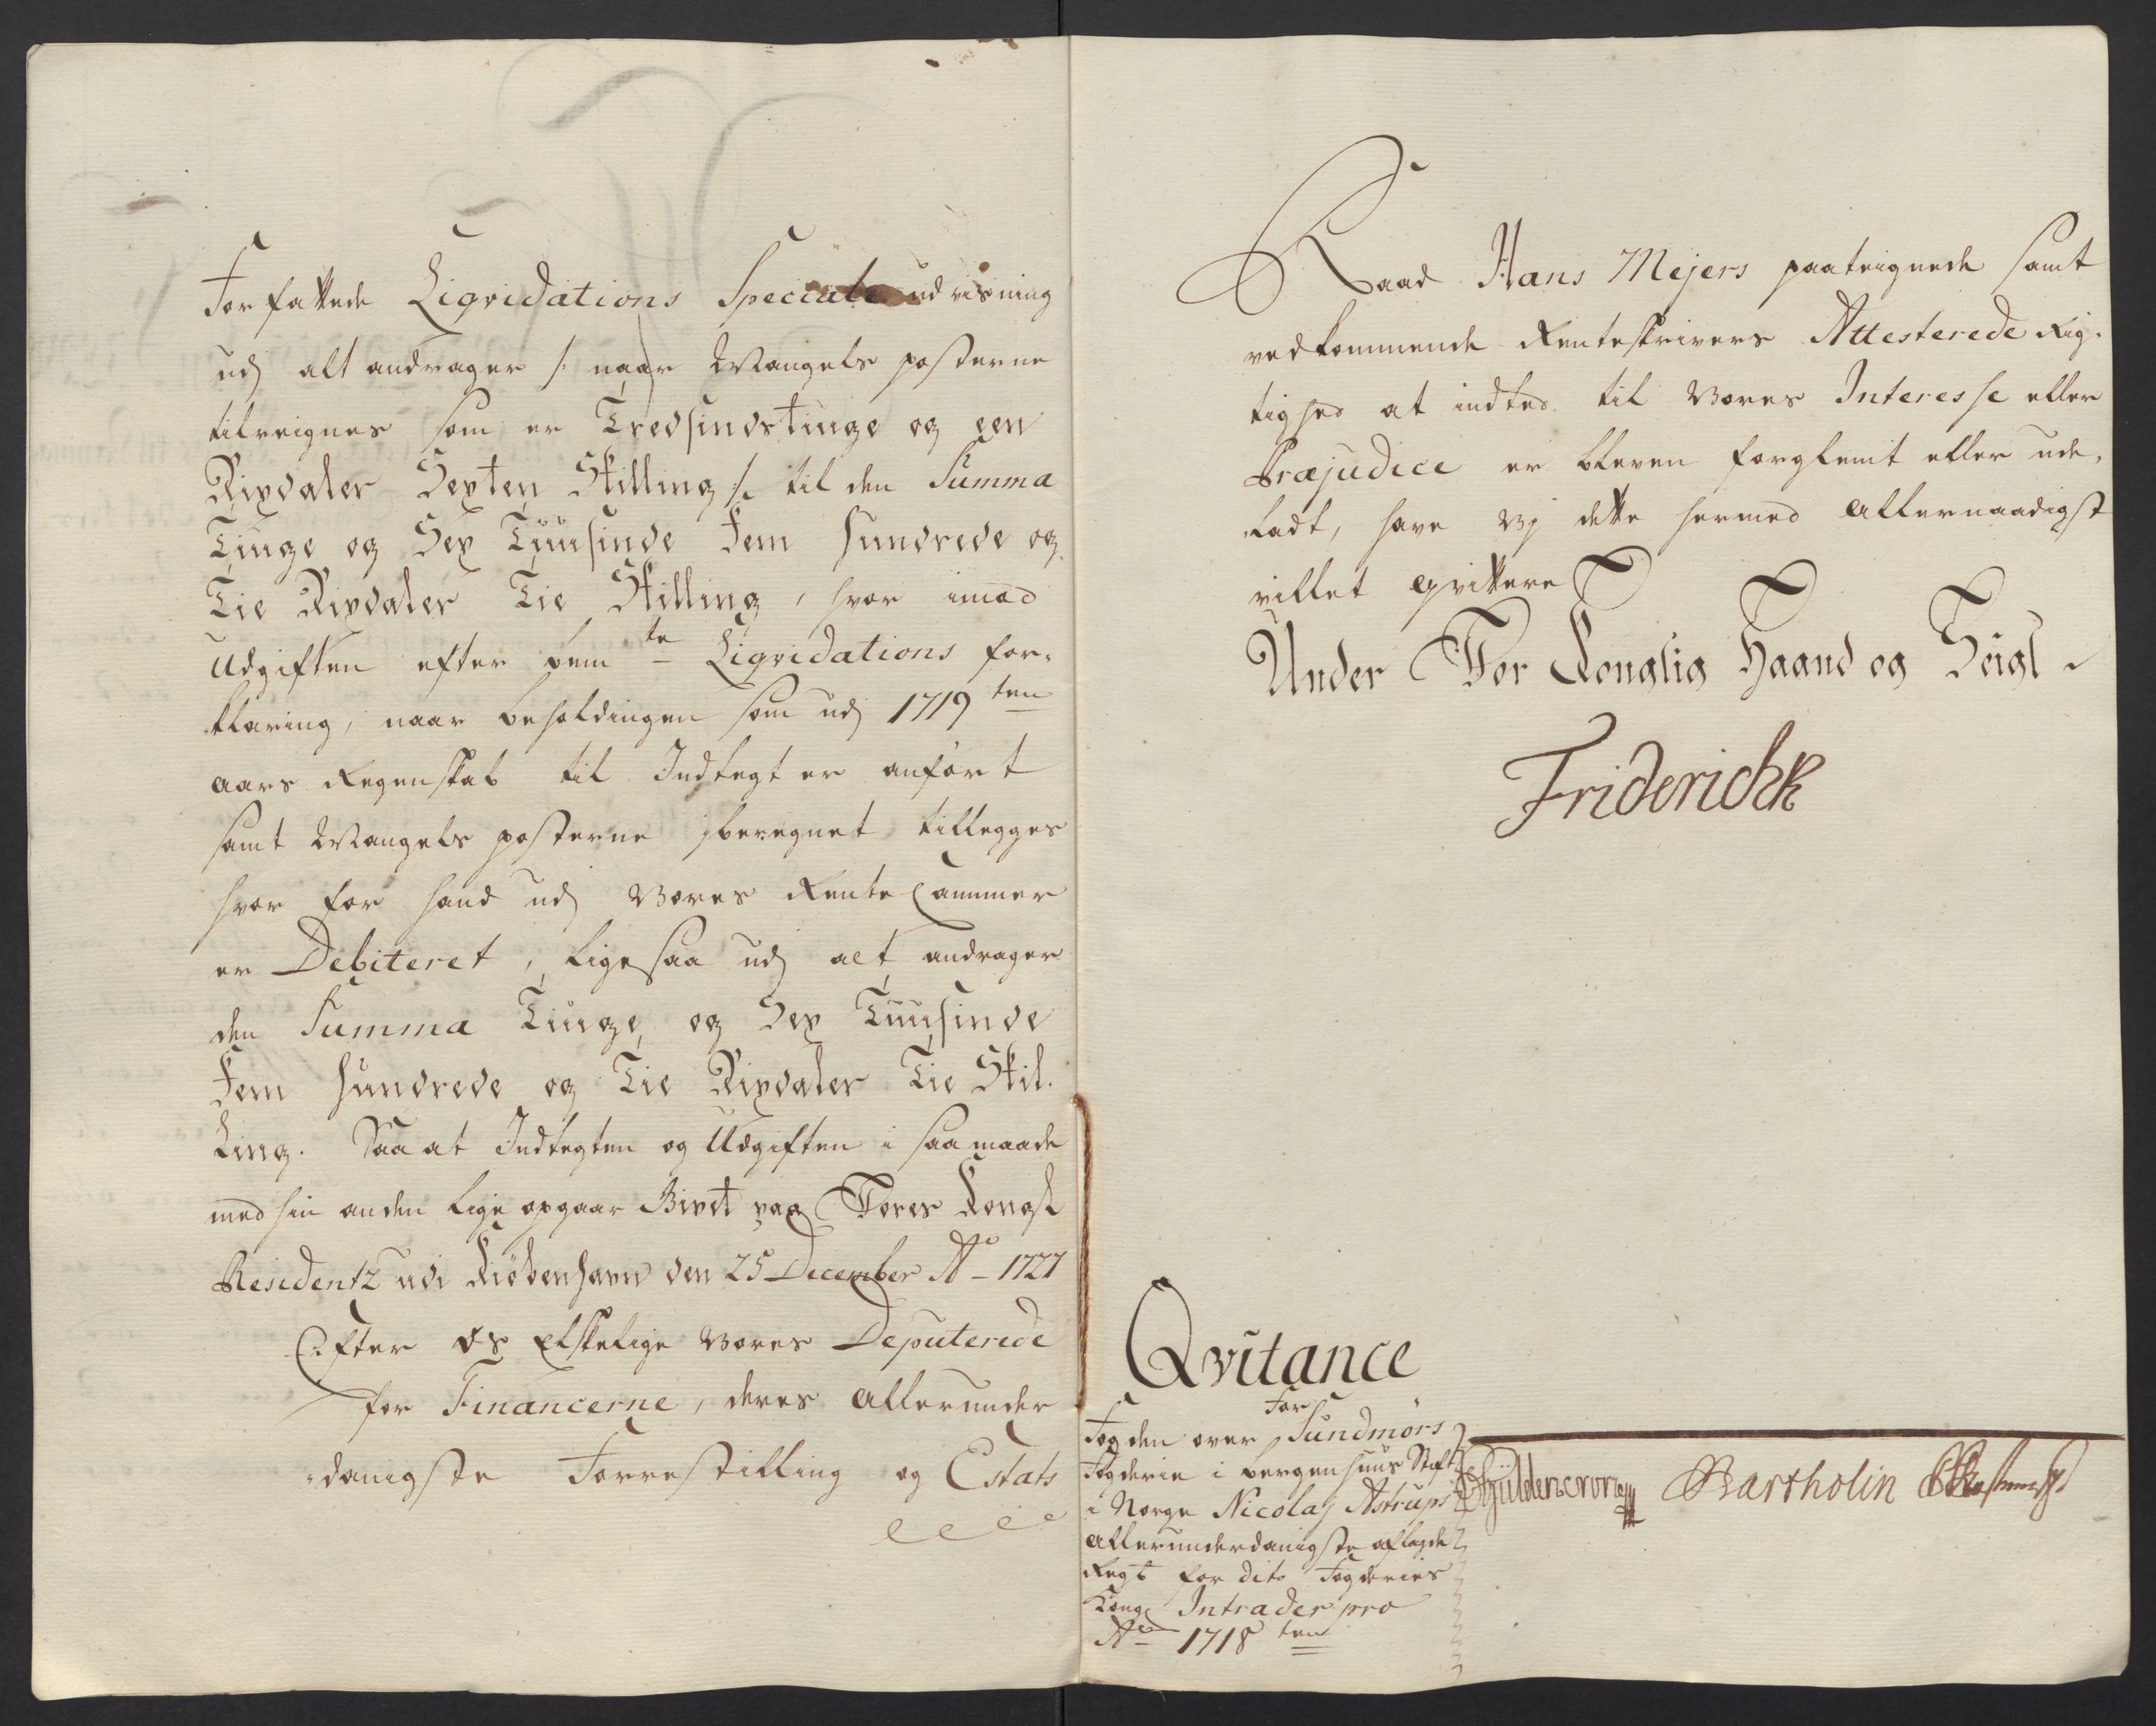 Forfattede Liqvidations Speciale udvisning
udj alt andrager /: naar Mangels posterne
tilreignes som er Tredsindstiuge og een
Rixdaler Sexten Skilling :/ til den Summa
Tiuge og Sex Tuusinde Fem Hundrede og
Tie Rixdaler Tie Skilling, hvor imod
Udgiften efter bemte Liqvidations for-
klaring, naar beholdingen som udj 1719ten
aars Regenskab til Indtegt er anført
samt Mangels posterne iberegnet tillegges
hvor for hand udj Vores Rente Cammer
er Debiteret, ligesaa udj alt andrager
den Summa Tiuge og Sex Tuusinde
Fem Hundrede og Tie Rixdaler Tie Skil-
ling. Saa at Indtegten og Udgiften i saa maade
med hin anden lige opgaar Givet paa Vores Kongl
Residentz udi Kiøbenhavn den 25 December Ao 1727
Efter os Elskelige Vores Deputerede
for Financerne, deres allerunder
-danigste Forrestilling og Estats
Raad Hans Mejers paateignede samt
vedkommende Renteskrivers Attesterede Rig-
tighed at indted til Vores Interesse eller
Præjudice er bleven forglemt eller ude-
ladt, have Vj dette hermed allernaadigst
villet qvittere
Under Vor Konglig Haand og Seigl
Friderich R
Qvitance
For
Fogden over Sundmørs
Fogderie i Bergenhuus Stift
i Norge Nicolaj Astrups
allerunderdanigste aflagde
Regb for dito Fogderies
Kong Intrader pro
Ao 1718ten
Gyldencrone Bartholin